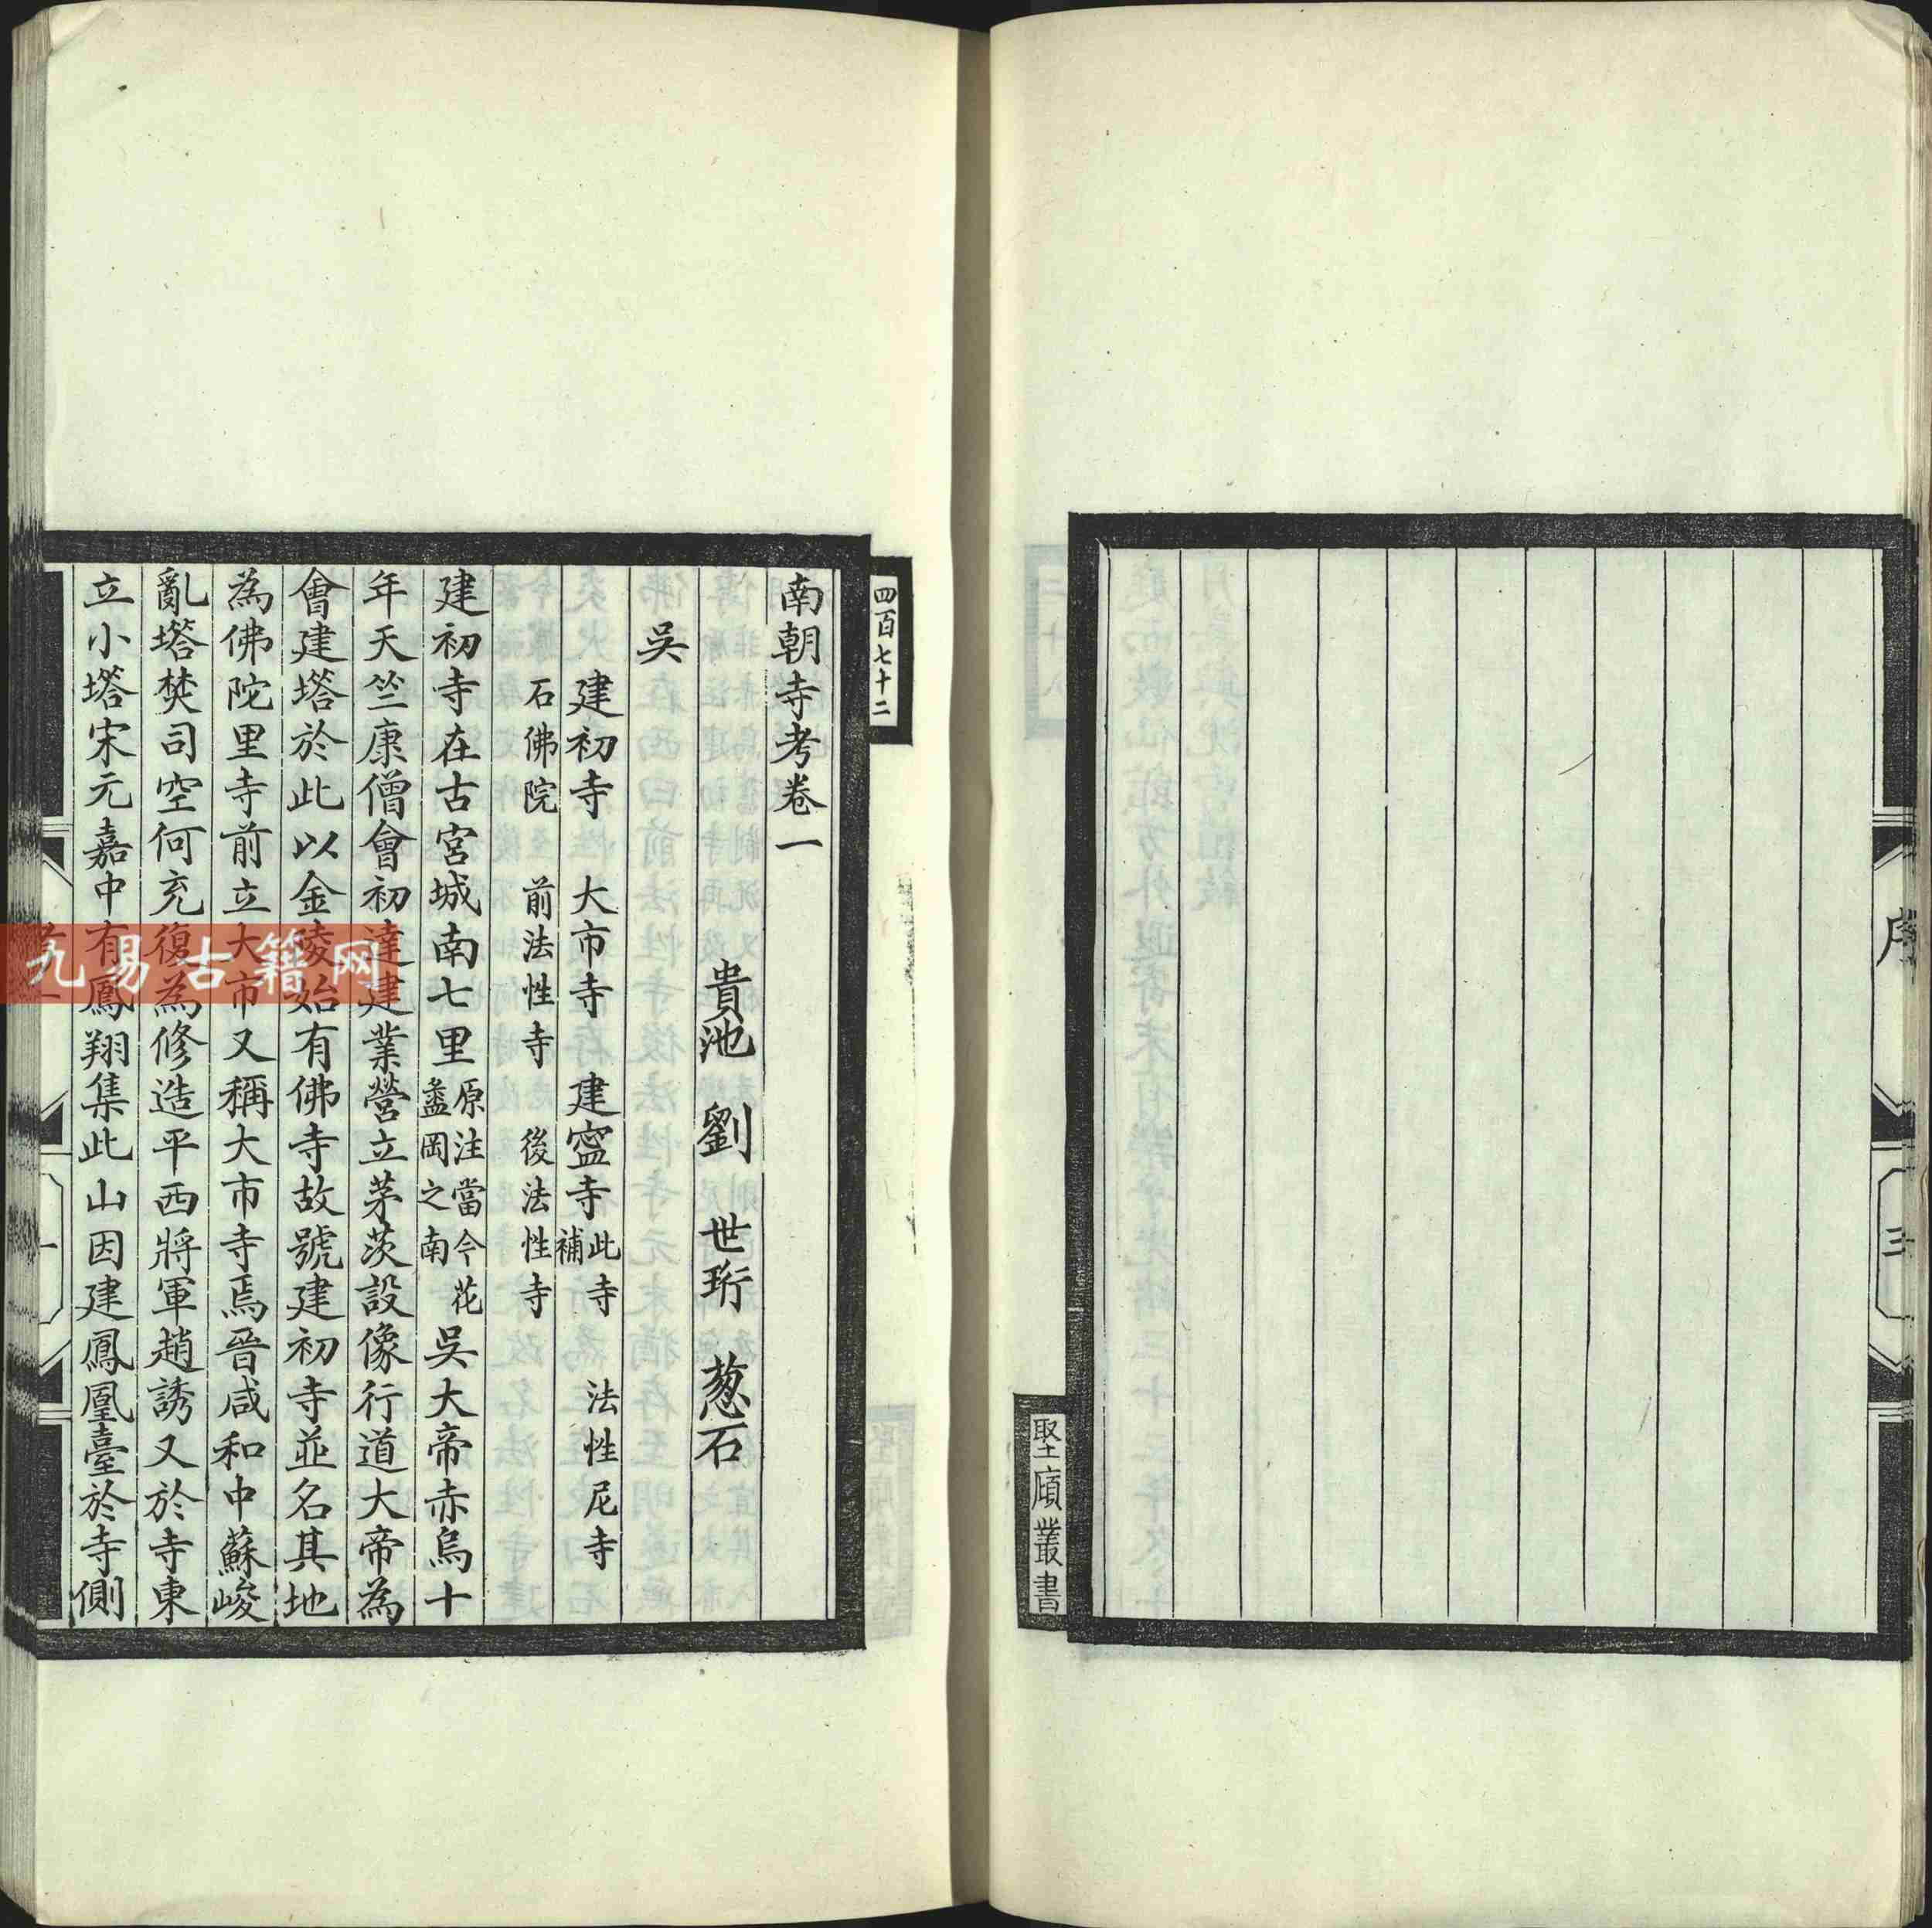 序
三
堅廎叢書
四百七十二
南朝寺考卷一
貴池 劉 世珩 蔥石
吳
建初寺 大市寺 建寍寺此寺補 法性尼寺
石佛院 前法性寺 後法性寺
建初寺在古宮城南七里原注當今花盝岡之南吳大帝赤烏十
年天竺康僧會初達建業營立茅茨設像行道大帝為
會建塔於此以金陵始有佛寺故號建初寺並名其地
為佛陀里寺前立大市又稱大市寺焉晉咸和中蘇峻
亂塔焚司空何充復為修造平西將軍趙誘又於寺東
立小塔宋元嘉中有鳳翔集此山因建鳳凰臺於寺側
一
九易古籍网